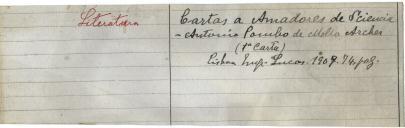 Literatura
Cartas a Amadores de Sciencia
- Antonio Pombo de Mello Archer
(1ª Carta)
Lisboa Imp. Lucas. 1909. 74. pag.